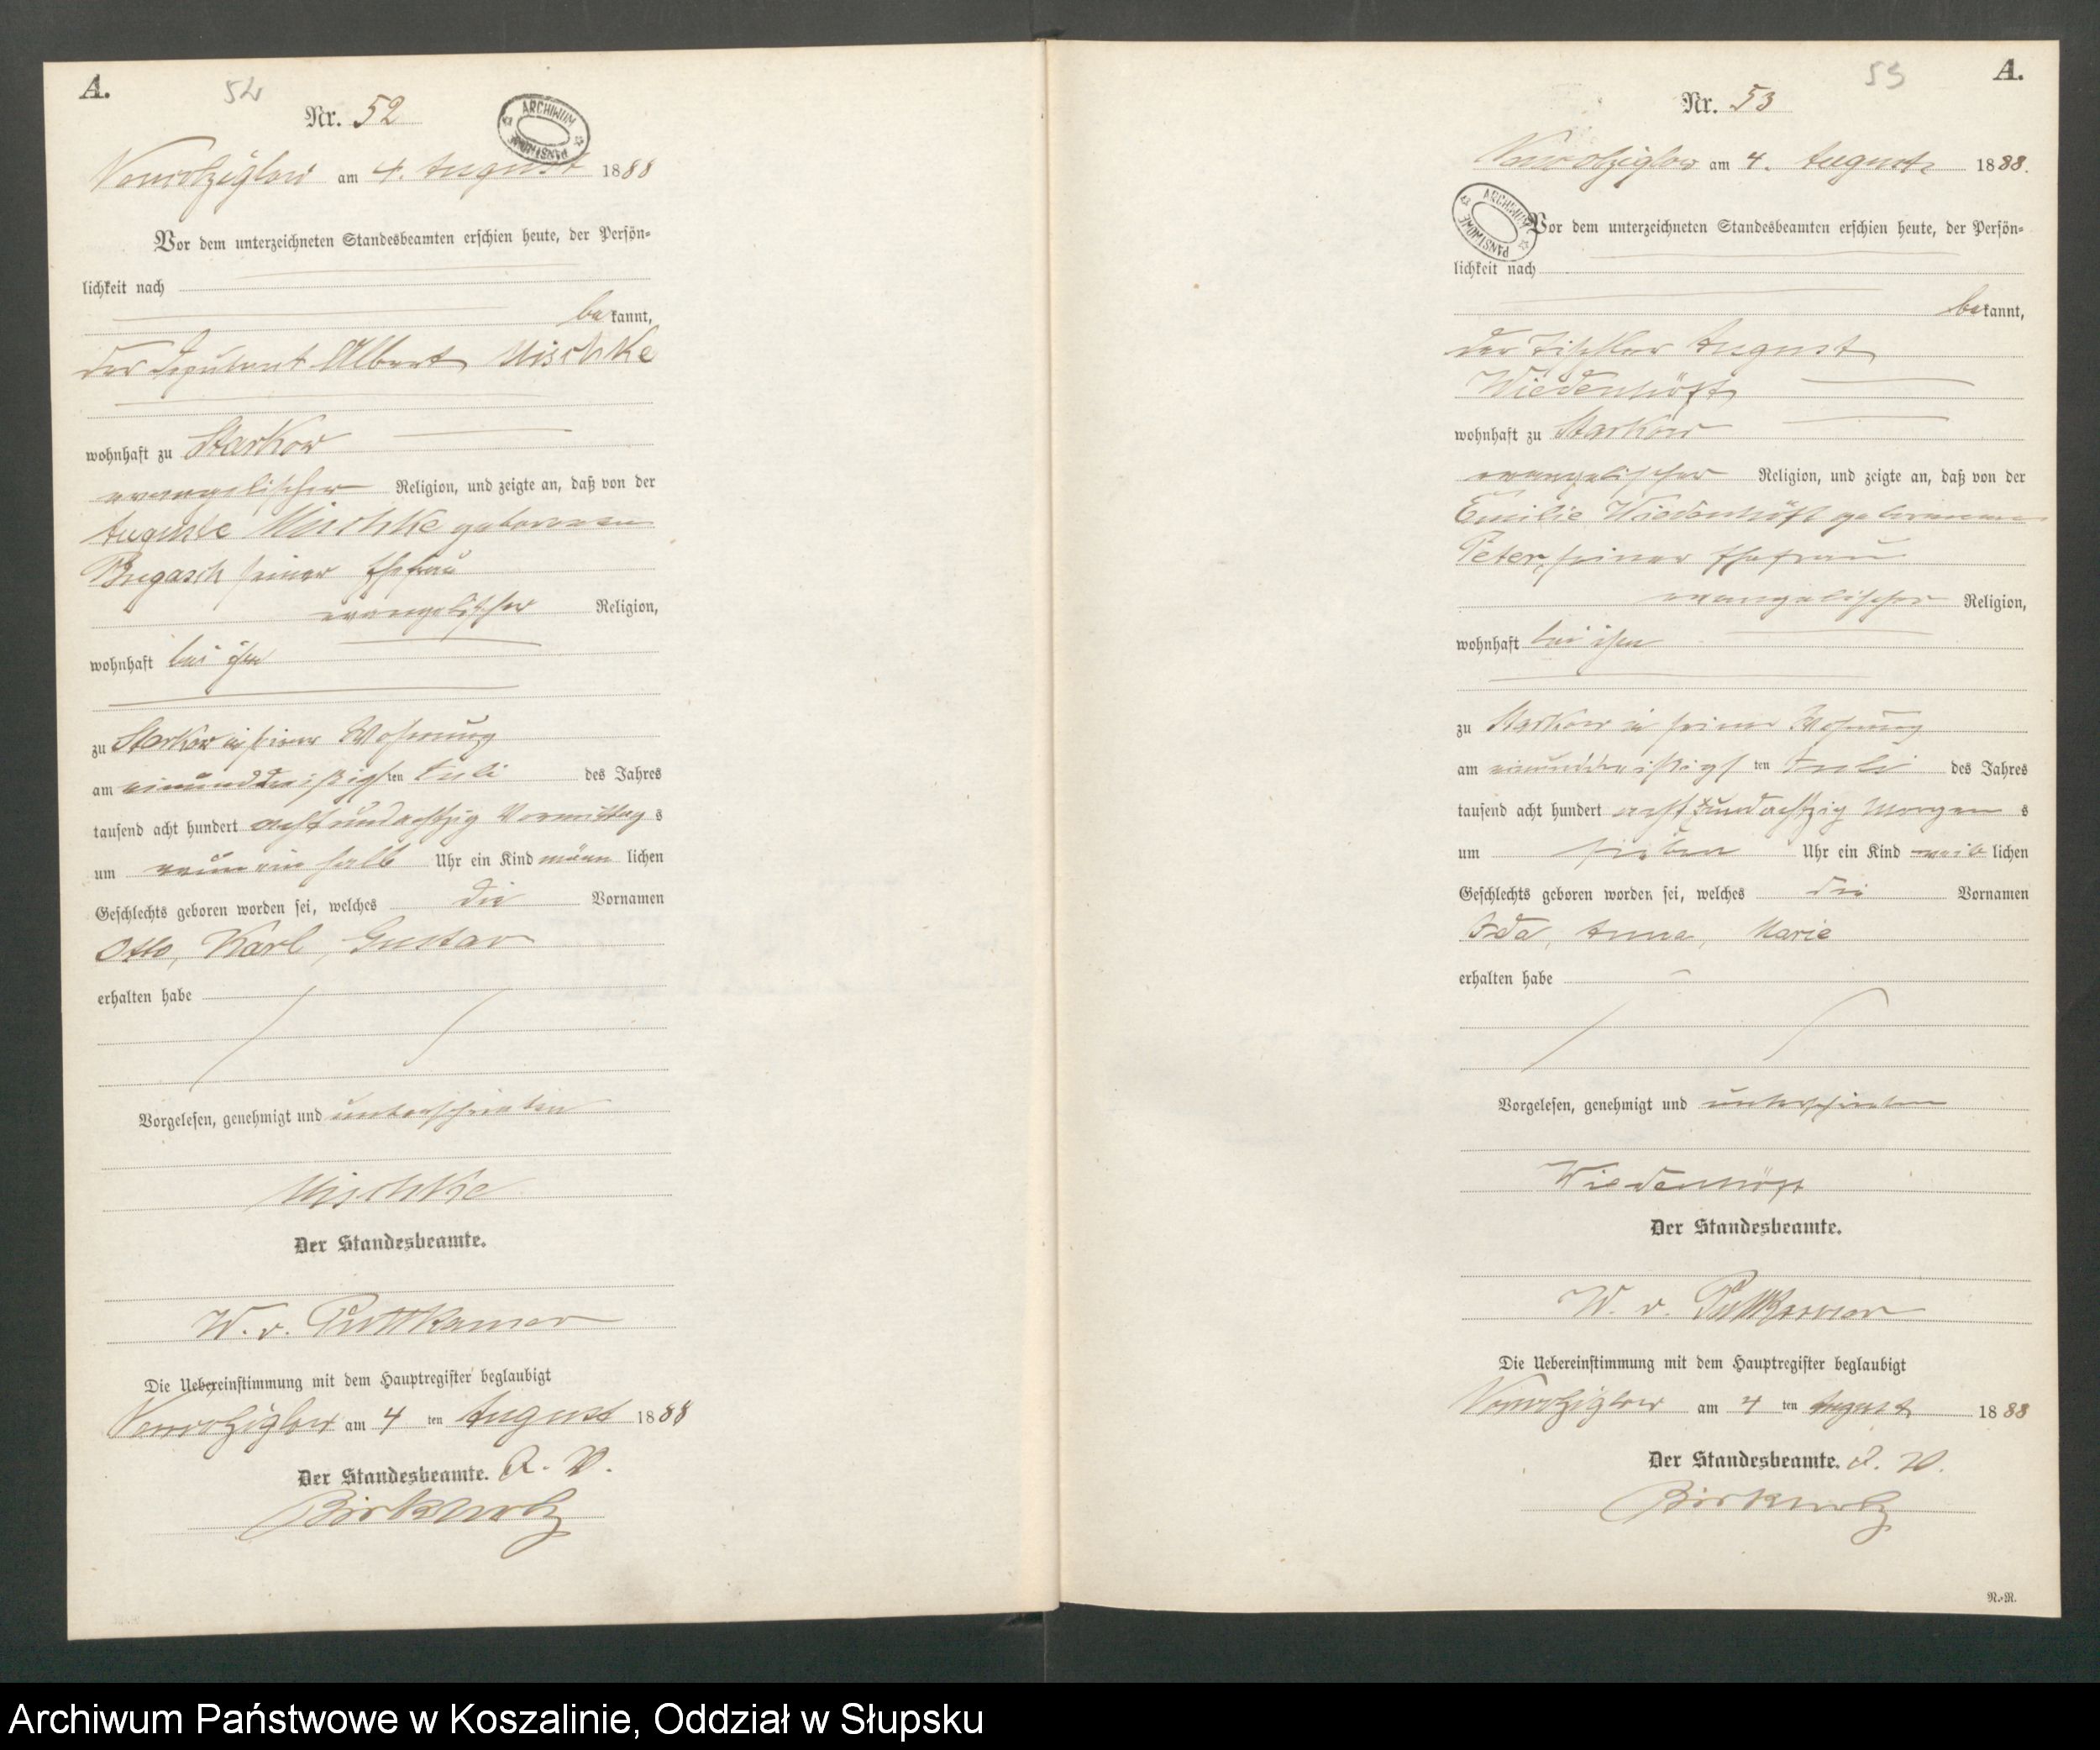 A.
52
Nr. 52
ARCHIWUM
PAŃSTWOWE
am 4. August 1888
Vor dem unterzeichneten Standesbeamten erschien heute, der Persön-
lichkeit nach
bekannt,
der Deputant Albert Mischke
wohnhaft zu Starkow
evangelischer Religion, und zeigte an, daß von der
Auguste Mischke geborenen
seiner Ehefrau
evangelischer Religion,
wohnhaft bei ihm
zu Starkow in seiner Wohnung
am einunddreißigsten Juli des Jahres
tausend acht hundert achtundachtzig Vormittags
um neun ein halb Uhr ein Kind männlichen
Geschlechts geboren worden sei, welches die Vornamen
Otto, Karl, Gustav
erhalten habe
Vorgelesen, genehmigt und unterschrieben
Mischke
Der Standesbeamte.
W. v. Puttkamer
Die Uebereinstimmung mit dem Hauptregister beglaubigt
am 4 ten August 1888
Der Standesbeamte.
A.
53
Nr. 53
ARCHIWUM
PAŃSTWOWE
am 4. August 1888.
Vor dem unterzeichneten Standesbeamten erschien heute, der Persön-
lichkeit nach
bekannt,
der Tischler August
Wiedenhöft
wohnhaft zu Starkow
evangelischer Religion, und zeigte an, daß von der
Emilie Wiedenhöft geborenen
Peter, seiner Ehefrau
evangelischer Religion,
wohnhaft bei ihm
zu Starkow in seiner Wohnung
am einunddreißigsten Juli des Jahres
tausend acht hundert achtundachtzig Morgens
um sieben Uhr ein Kind weiblichen
Geschlechts geboren worden sei, welches die Vornamen
Ida, Anna, Marie
erhalten habe
Vorgelesen, genehmigt und unterschrieben
Wiedenhöft
Der Standesbeamte.
W. v. Puttkamer
Die Uebereinstimmung mit dem Hauptregister beglaubigt
am 4 ten August 1888
Der Standesbeamte.
N.-N.
Archiwum Państwowe w Koszalinie, Oddział w Słupsku